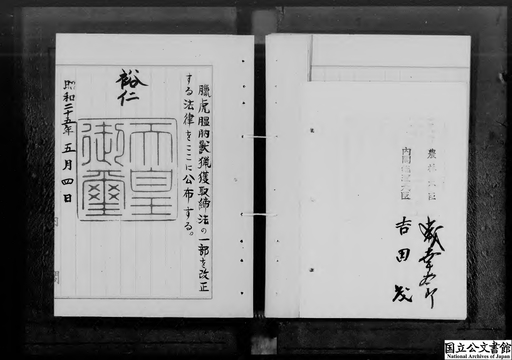 臘虎膃肭獣猟獲取締法の一部を改正
する法律をここに公布する。
裕仁
天皇
御璽
昭和二十五年五月四日
内閣総理大臣
吉田茂
農林大臣
国立公文書館
National Archives of Japan